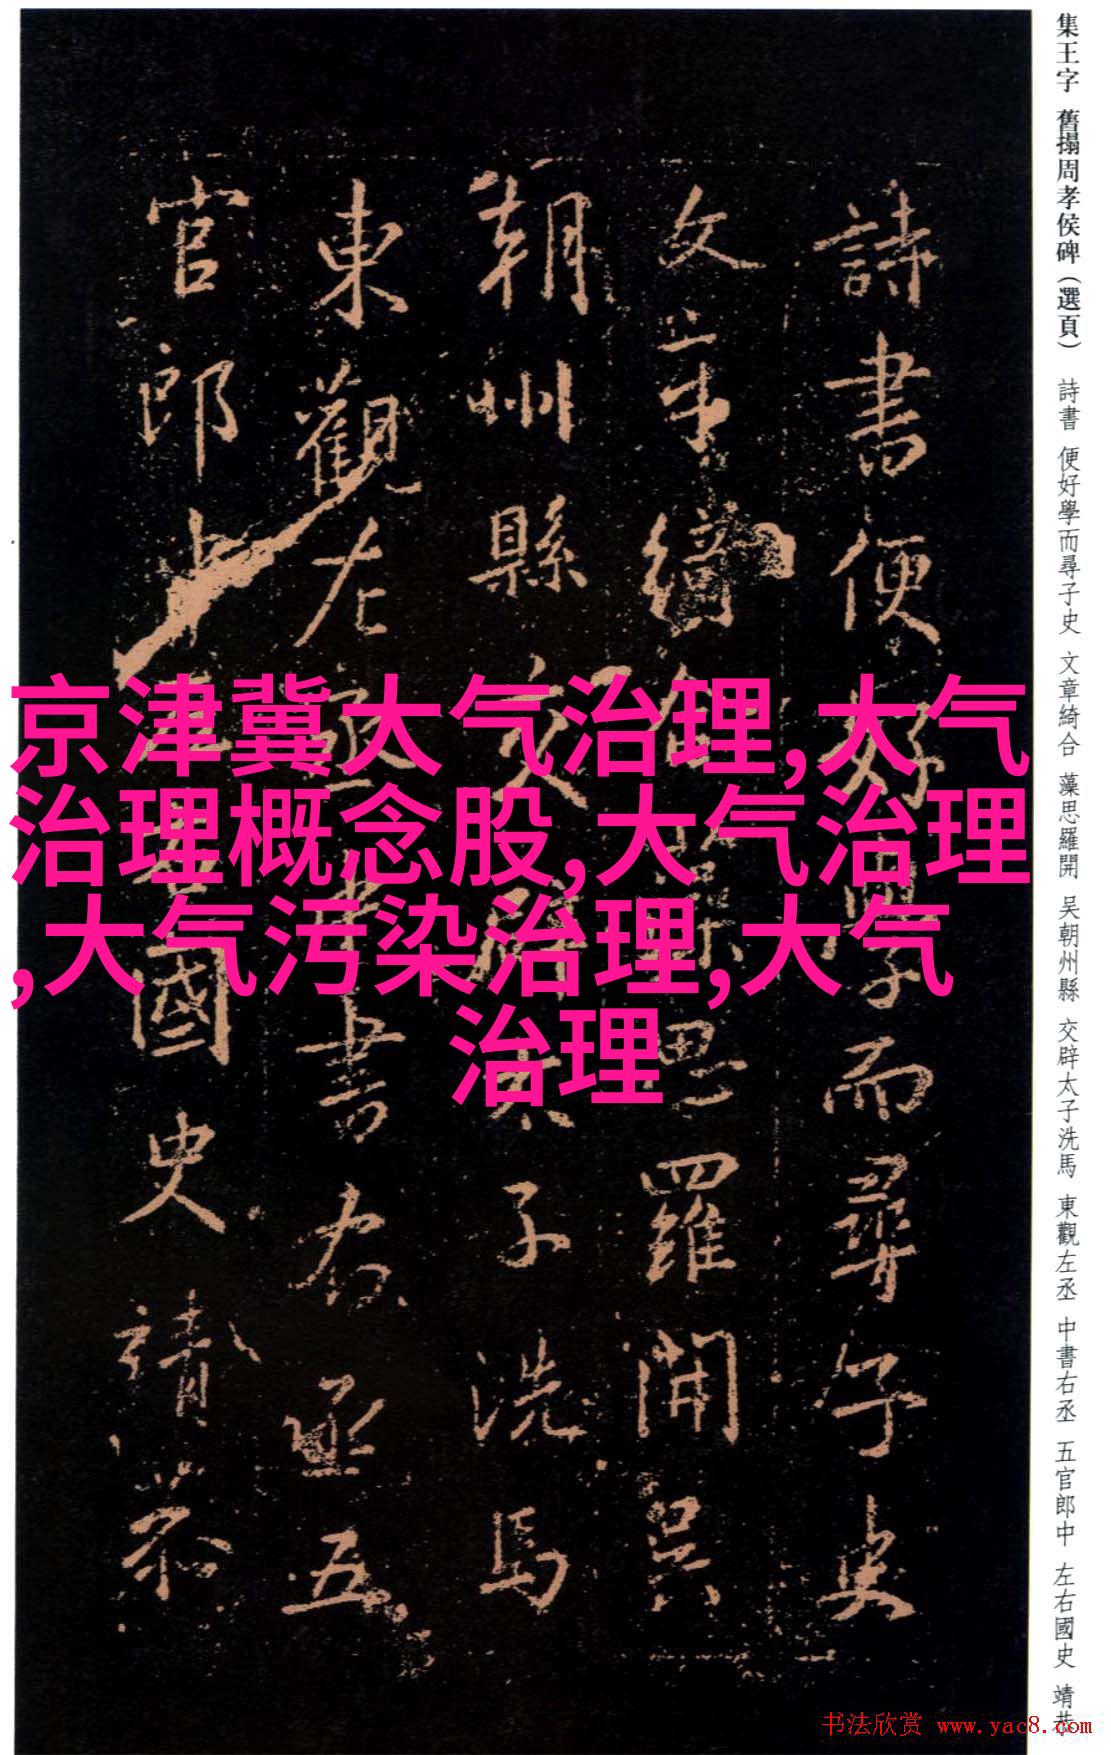 集王字 舊搨周孝侯碑（選頁） 詩書 便好學而尋子史 文章綺合 藻思羅開 吴朝州縣 交辟太子洗馬 東觀左丞 中書右丞 五官郎中 左右國史 靖恭
詩書便好學而尋子史
文章綺合藻思羅開吴
朝州縣交辟太子洗馬
東觀左丞中書右丞五
官郎中左右國史靖恭
京津冀大气治理,大气
治理概念股,大气治理
,大气污染治理,大气
治理
书法欣赏 www.yac8.com